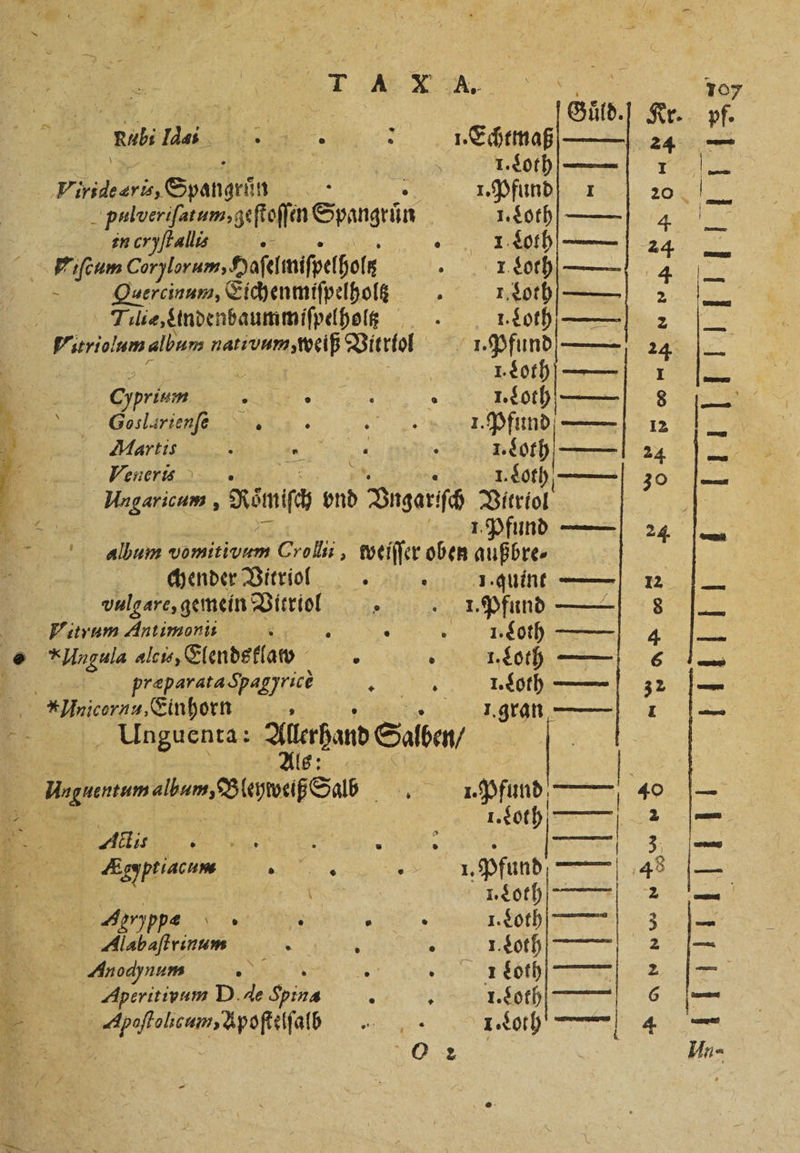 TAXA. 107
Gûld. Kr. pf.
Rubi Idæi . . . 1.Schmaß —— 24 —
1.Loth —— 1 —
Viride æris, Spangrün . . 1.Pfund 1 20 —
pulverisatum, gestossen Spangrün 1.Loth —— 4 —
in crystallis . . . . 1 Loth —— 24 —
Viscum Corylorum, Haselmispelholtz . 1 Loth —— 4 —
Quercinum, Eichenmispelholtz . 1.Loth —— 2 —
Tiliæ, Lindenbaummispelholtz . 1.Loth —— 2 —
Vitriolum album nativum, weiß Vitriol 1.Pfund —— 24 —
1.Loth —— 1 —
Cyprium . . . . 1.Loth —— 8 —
Goslariense . . . . 1.Pfund —— 12 —
Martis . . . . 1.Loth —— 24 —
Veneris . . . . 1.Loth —— 30 —
Ungaricum, Römisch vnd Vngarisch Vitriol
1.Pfund —— 24 —
album vomitivum Crollii, weisser oben außbre-
chender Vitriol . . 1.quint —— 12 —
vulgare, gemein Vitriol . . 1.Pfund —— 8 —
Vitrum Antimonii . . . . 1.Loth —— 4 —
*Ungula alcis, Elendsklaw . . 1.Loth —— 6 —
præparata Spagyricè . . 1.Loth —— 32 —
*Unicornu, Einhorn . . . 1.gran —— 1 —
Unguenta: Allerhand Salben/
Als:
Unguentum album, Bleyweiß Salb . 1.Pfund —— 40 —
1.Loth —— 2 —
Actis . . . . . . —— 3 —
Ægyptiacum . . . 1.Pfund —— 48 —
1.Loth —— 2 —
Agryppæ . . . . . 1.Loth —— 3 —
Alabastrinum . . . 1.Loth —— 2 —
Anodynum . . . . 1 Loth —— 2 —
Aperitivum D. de Spina . . 1.Loth —— 6 —
Apostolicum, Apostelsalb . . 1.Loth —— 4 —
O 2 Un-